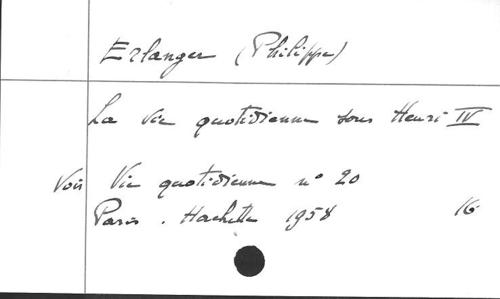 Erlanger (Philippe)
La Vie quotidienne sous Henri IV
Voir Vie quotidienne n° 20
Paris. Hachette 1958 16